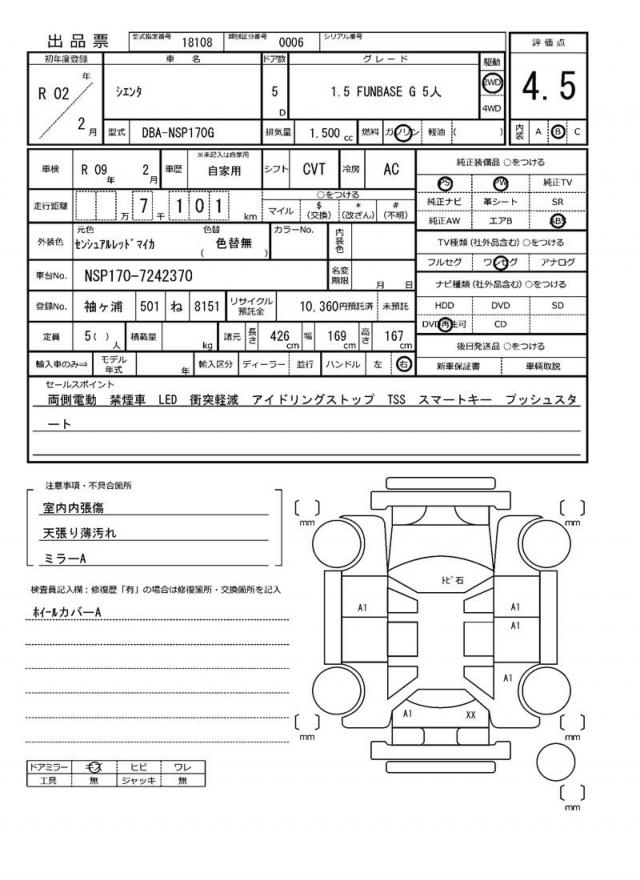 出品票 型式指定番号 18108 類別区分番号 0006 シリアル番号
初年度登録 車名 ドア数 グレード 駆動 評価点
R 02 年 2 月 シエンタ 5 D 1.5 FUNBASE G 5人 2WD 4WD 4.5
型式 DBA-NSP170G 排気量 1.500 cc 燃料 ガソリン 軽油 ( ) 内装 A B C
車検 R 09 年 2 月 車歴 ※未記入は自家用 自家用 シフト CVT 冷房 AC
走行距離 万 7 千 1 0 1 km ○をつける マイル $ (交換) * (改ざん) # (不明)
外装色 元色 センシュアルレッドマイカ 色替 ( 色替無 ) カラーNo. 内装色
車台No. NSP170-7242370 名変期限 月 日
登録No. 袖ヶ浦 501 ね 8151 リサイクル預託金 10,360円預託済 未預託
定員 5( ) 人 積載量 kg 諸元 長さ 426 cm 幅 169 cm 高さ 167 cm
輸入車のみ⇒ モデル年式 年 輸入区分 ディーラー 並行 ハンドル 左 右
純正装備品 ○をつける
PS PW 純正TV
純正ナビ 革シート SR
純正AW エアB ABS
TV種類(社外品含む)○をつける
フルセグ ワンセグ アナログ
ナビ種類(社外品含む)○をつける
HDD DVD SD
DVD再生可 CD
後日発送品 ○をつける
新車保証書 車輌取説
セールスポイント
両側電動 禁煙車 LED 衝突軽減 アイドリングストップ TSS スマートキー プッシュスタ
ート
注意事項・不具合箇所
室内内張傷
天張り薄汚れ
ミラーA
検査員記入欄：修復歴「有」の場合は修復箇所・交換箇所を記入
ホイールカバーA
ドアミラー キズ ヒビ ワレ
工具 無 ジャッキ 無
[ ] mm [ ] mm
トビ石
A1 A1
A1
A1
A1 XX
[ ] mm [ ] mm
[ ] mm